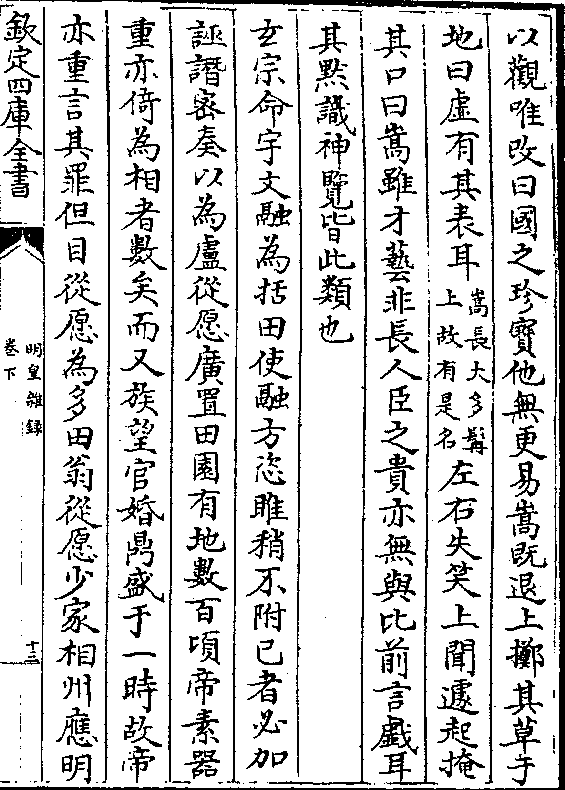 以觀唯改曰國之珍寳他無更易嵩既退上擲其草于
地曰虚有其表耳嵩長大多髯上故有是名左右失笑上聞遽起掩
其口曰嵩雖才藝非長人臣之貴亦無與比前言戲耳
其黙識神覽皆此類也
玄宗命宇文融為括田使融方恣睢稍不附己者必加
誣譖宻奏以為盧從愿廣置田園有地數百頃帝素器
重亦倚為相者數矣而又族望官婚鼎盛于一時故帝
亦重言其罪但目從愿為多田翁從愿少家相州應明
欽定四庫全書
明皇雜録
卷下
十三